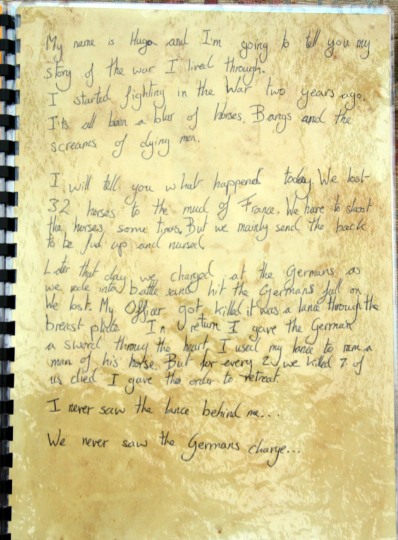 My name is Hugo and I'm going to tell you my
story of the war I lived through.
I started fighting in the War two years ago.
It's all been a blur of horses, Bangs and the
screams of dying men.
I will tell you what happend today. We lost
32 horses to the mud of France. We have to shoot
the horses some times. But we mainly send the back
to be fed up and nursed.
Later that day we charged at the Germans as
we rode into battle hit the Germans full on
We lost. My Officer got killed it was a lance through the
breast plate. In return I gave the German
a sword throug the heart. I used my lance to
man of his horse. But for every 2 we killed 7 of
us died I gave the order to retreat.
I never saw the lance behind me...
We never saw the Germans charge...